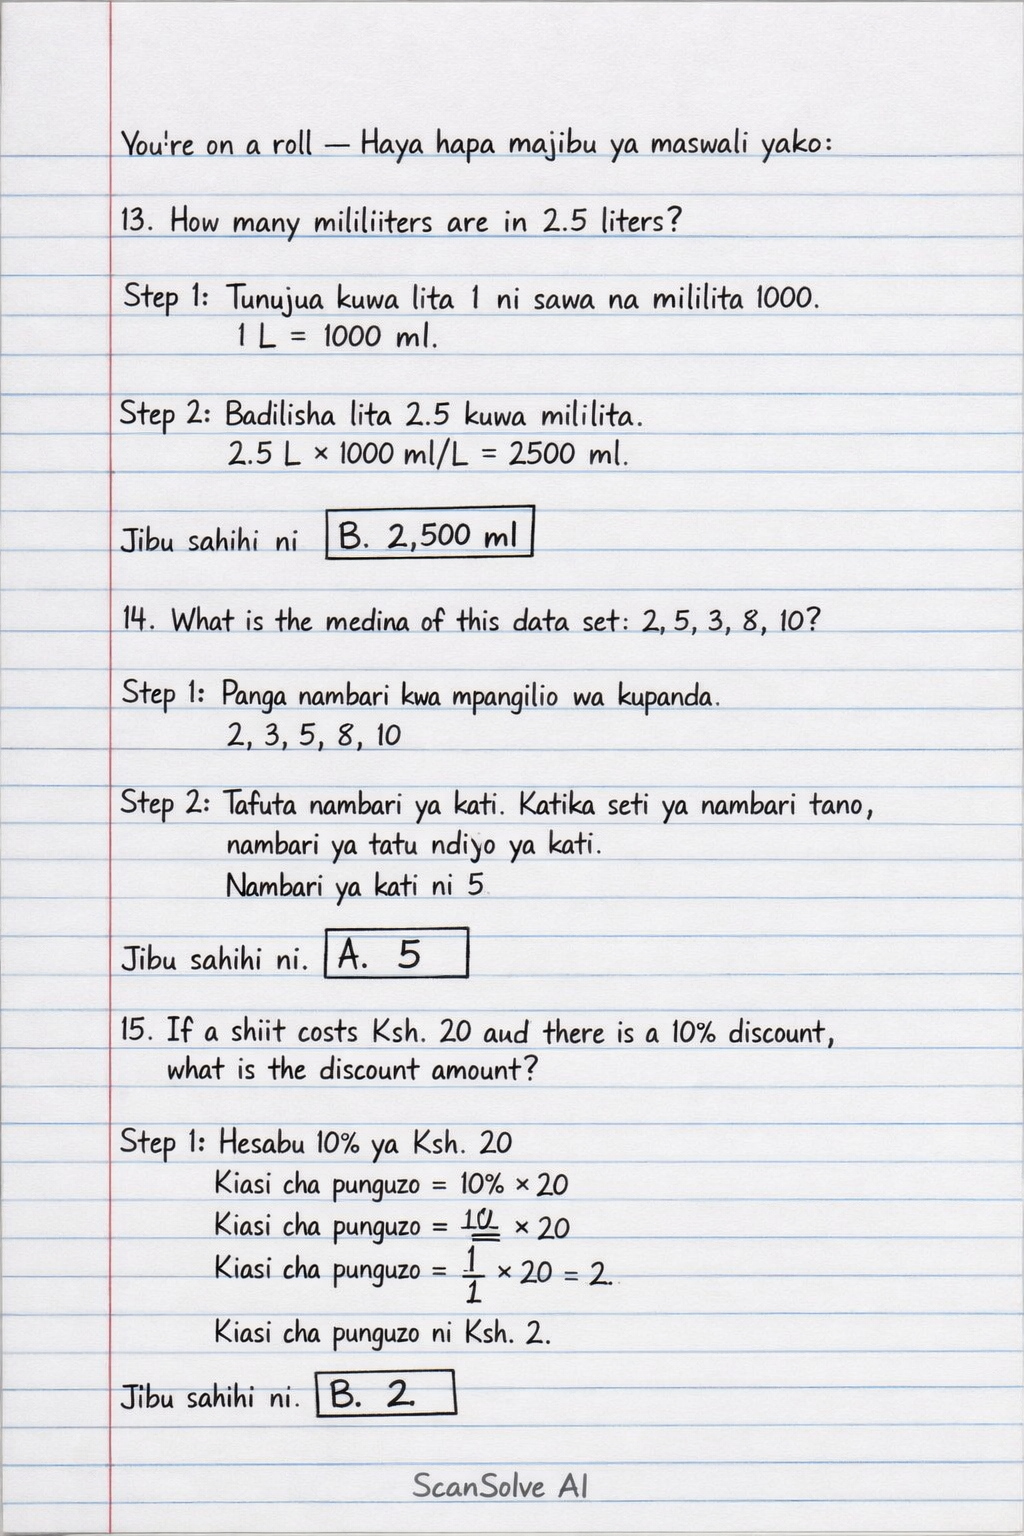 You're on a roll — Haya hapa majibu ya maswali yako:
13. How many mililiiters are in 2.5 liters?
Step 1: Tunujua kuwa lita 1 ni sawa na mililita 1000.
1 L = 1000 ml.
Step 2: Badilisha lita 2.5 kuwa mililita.
2.5 L × 1000 ml/L = 2500 ml.
Jibu sahihi ni B. 2,500 ml
14. What is the medina of this data set: 2, 5, 3, 8, 10?
Step 1: Panga nambari kwa mpangilio wa kupanda.
2, 3, 5, 8, 10
Step 2: Tafuta nambari ya kati. Katika seti ya nambari tano,
nambari ya tatu ndiyo ya kati.
Nambari ya kati ni 5
Jibu sahihi ni. A. 5
15. If a shiit costs Ksh. 20 aud there is a 10% discount,
what is the discount amount?
Step 1: Hesabu 10% ya Ksh. 20
Kiasi cha punguzo = 10% × 20
Kiasi cha punguzo = 10 × 20
Kiasi cha punguzo = 1/1 × 20 = 2.
Kiasi cha punguzo ni Ksh. 2.
Jibu sahihi ni. B. 2.
ScanSolve AI